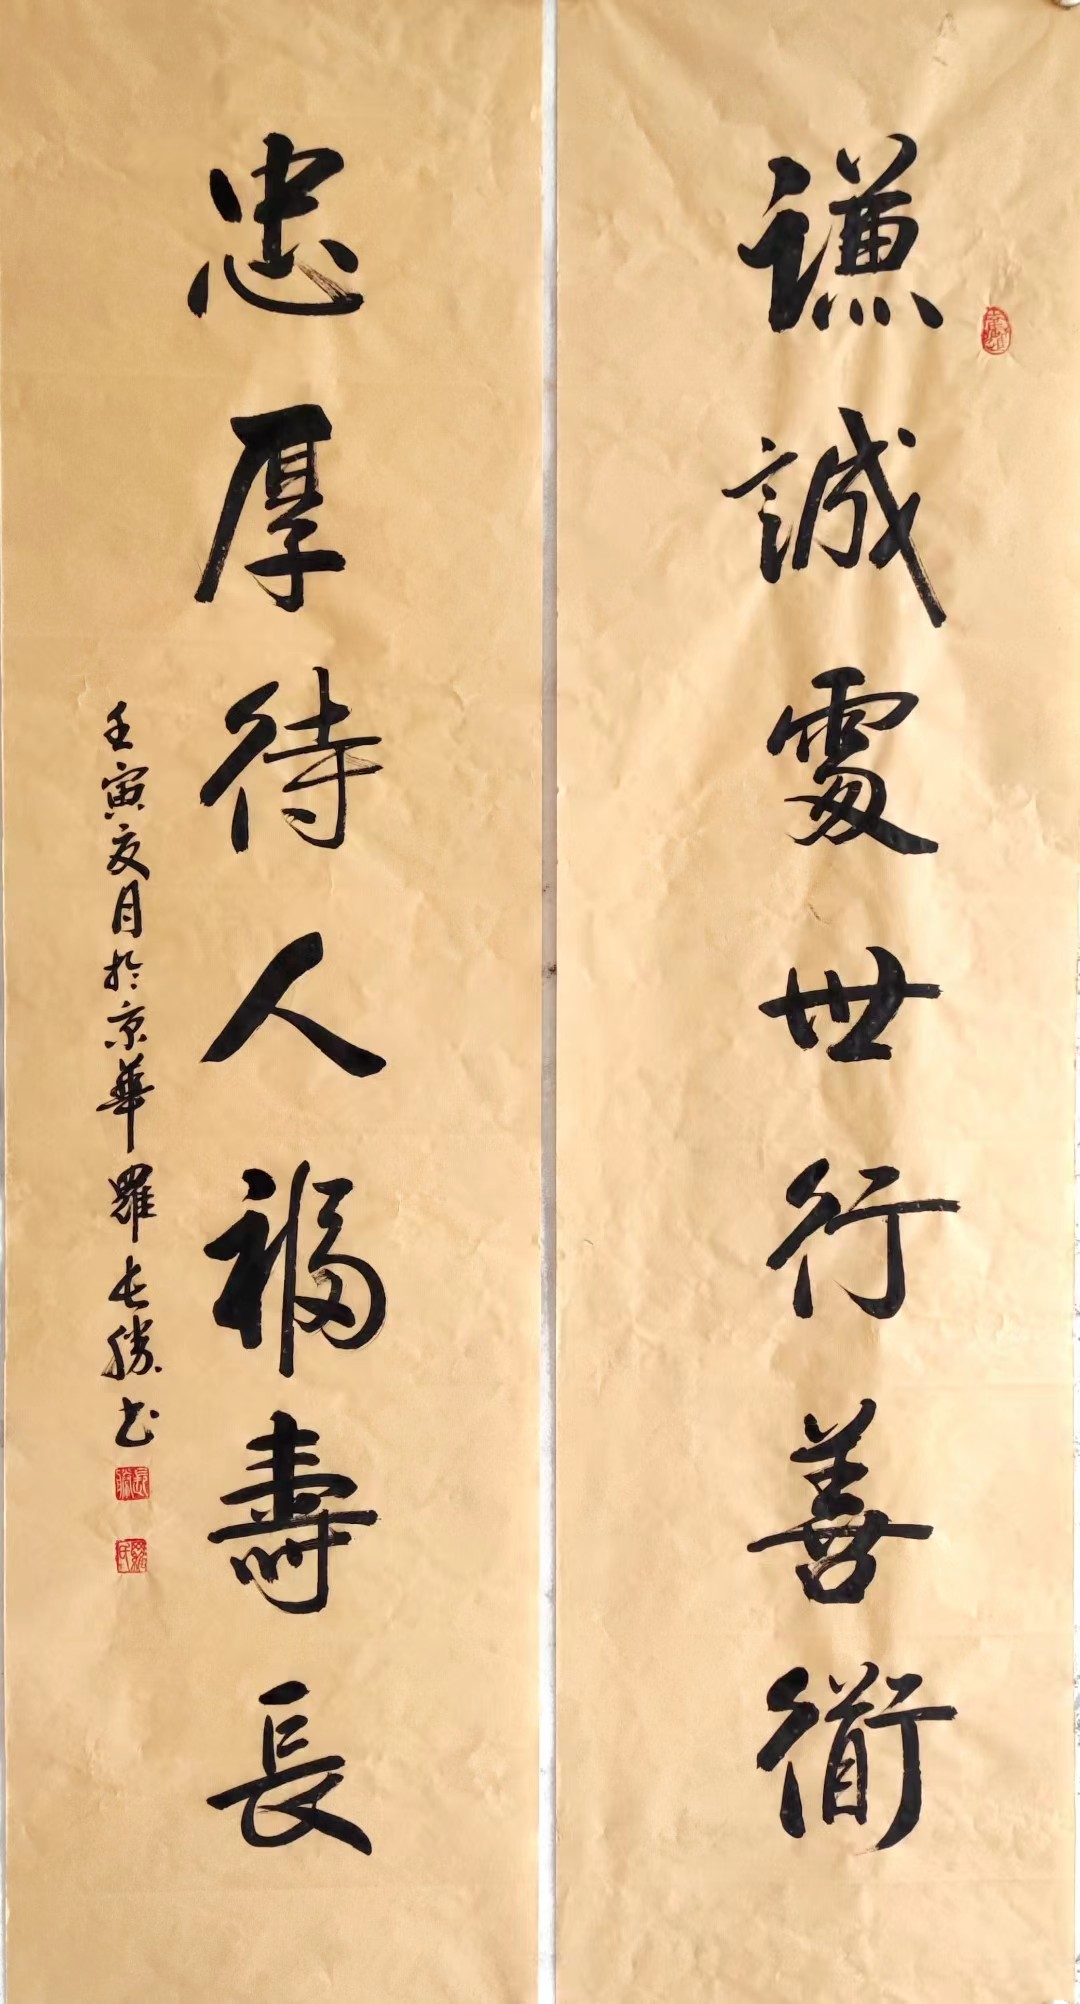 謙誠處世行善衜
忠厚待人福壽長
壬寅夏月於京華羅長勝书
長勝